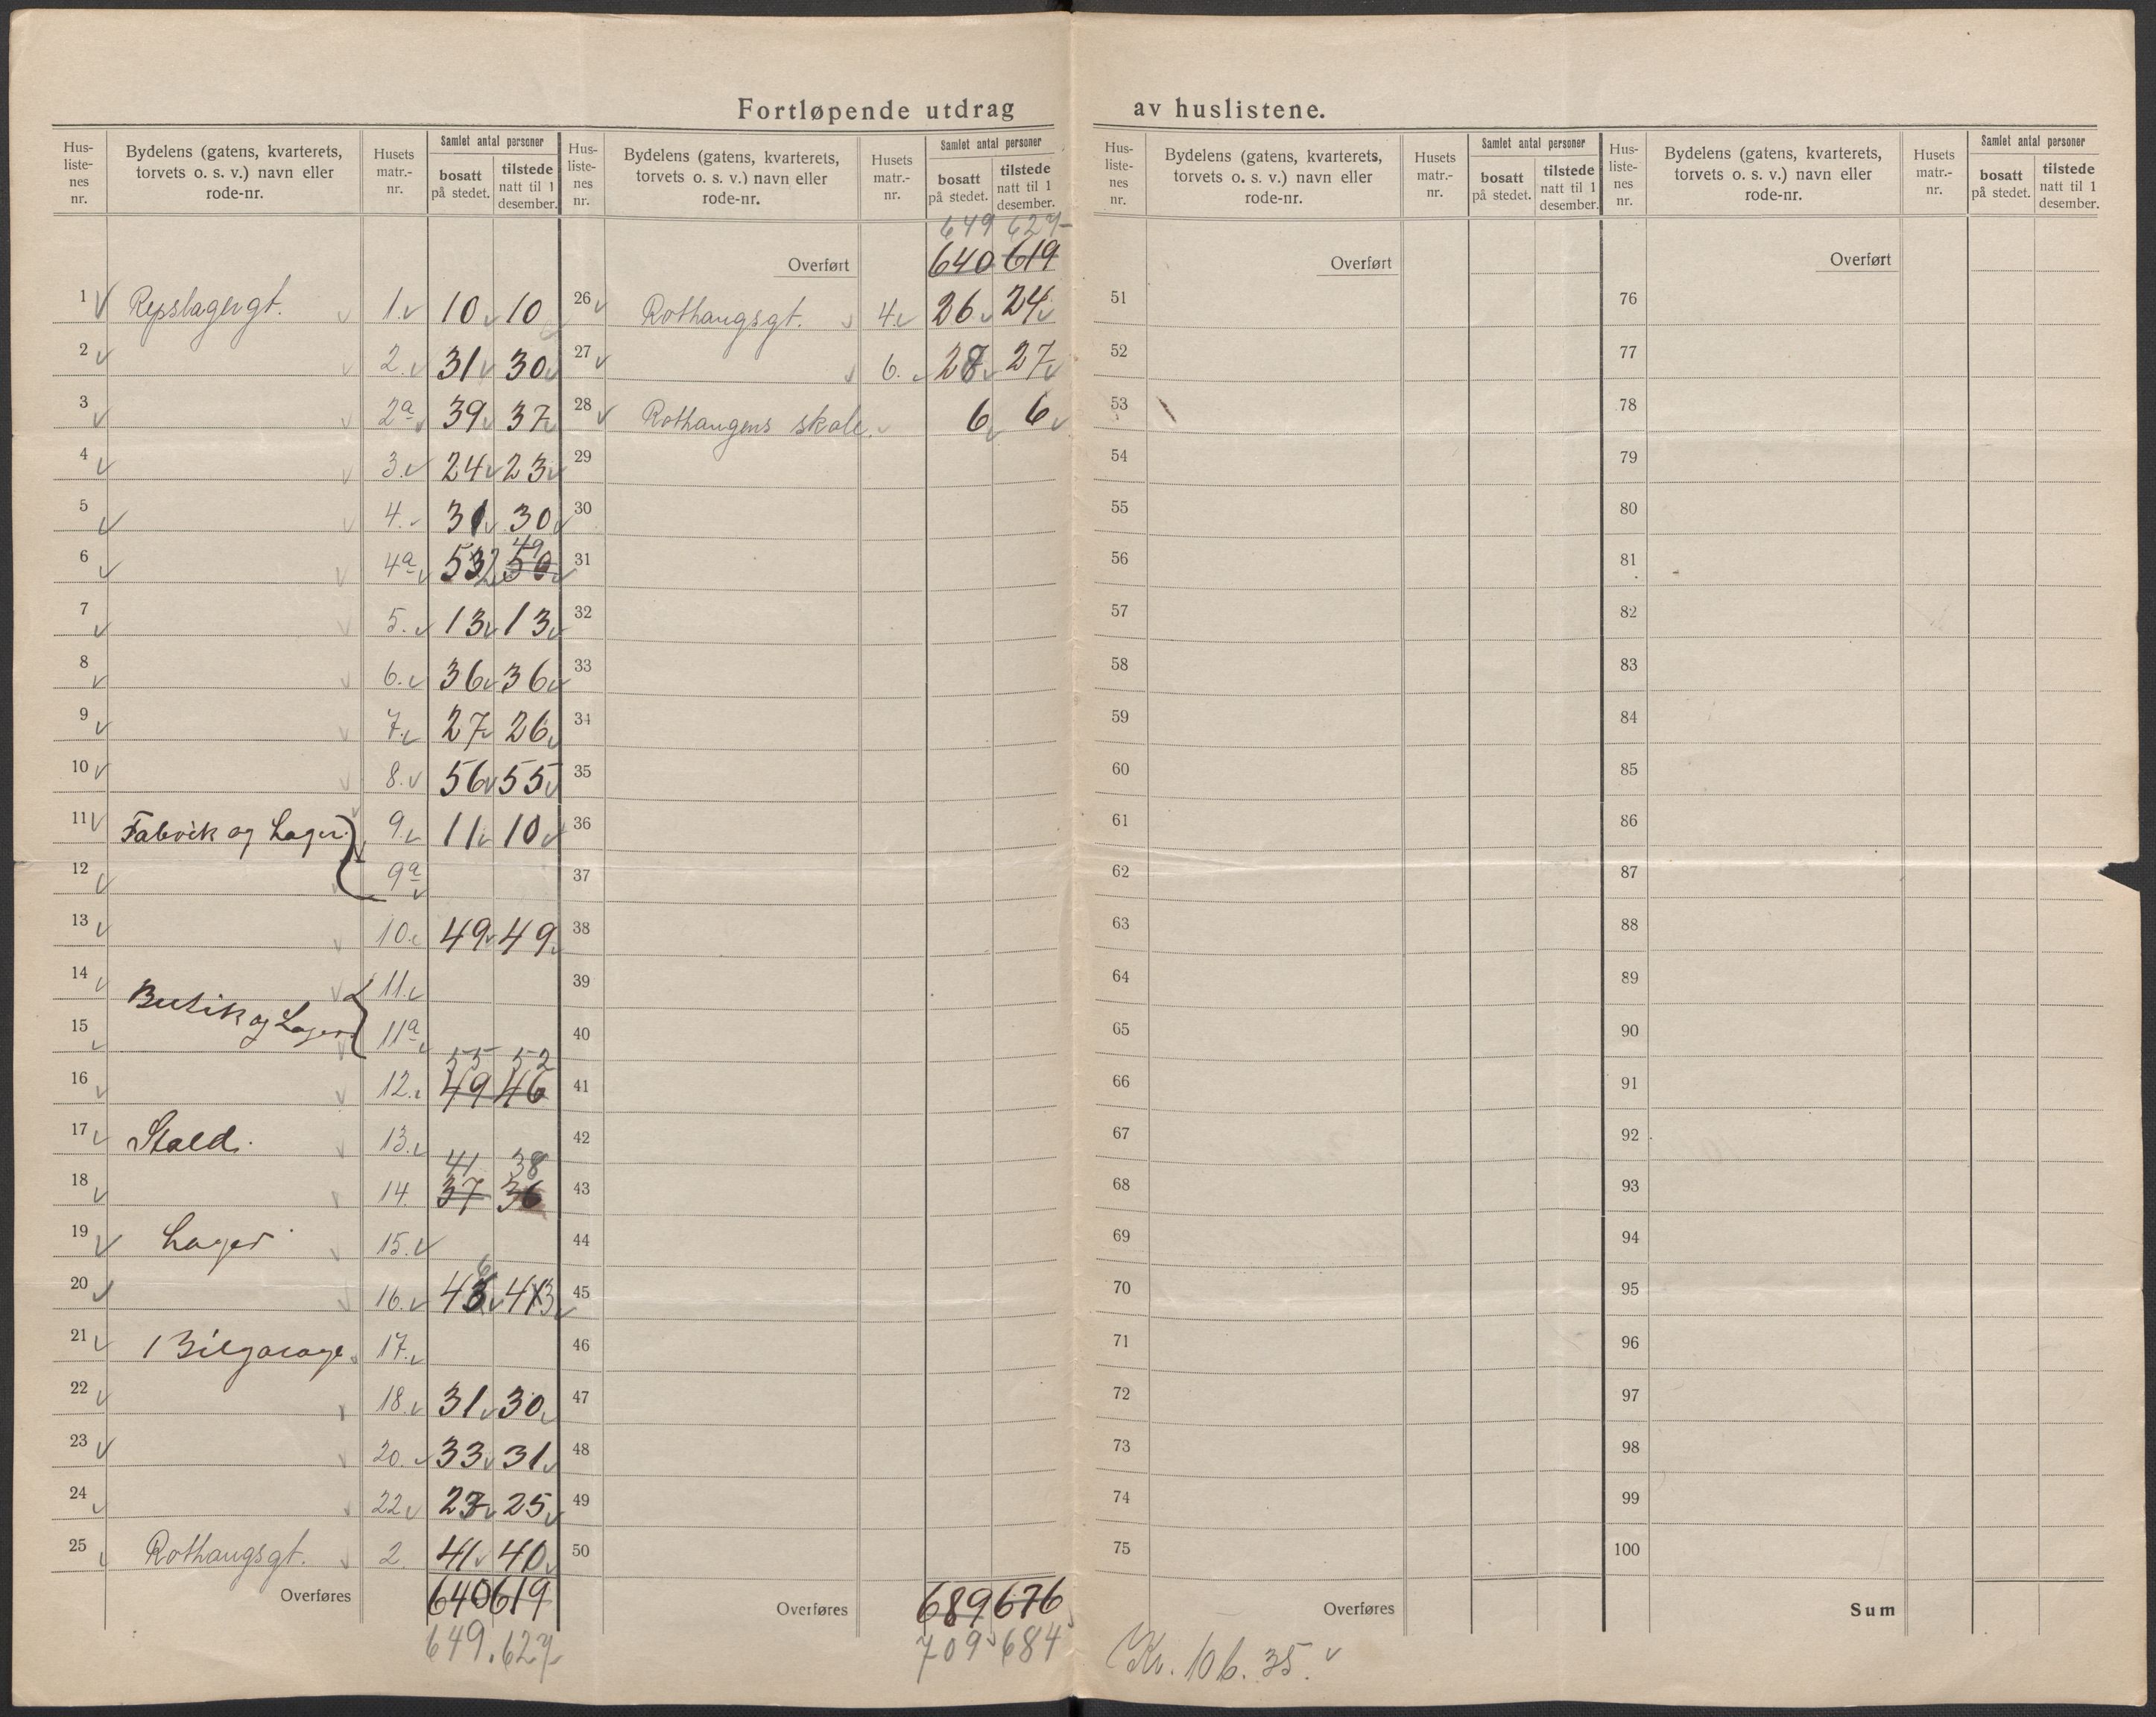 Fortløpende utdrag av huslistene.
Hus-liste-nes nr. | Bydelens (gatens, kvarterets, torvets o. s. v.) navn eller rode-nr. | Husets matr.-nr. | Samlet antal personer | bosatt på stedet. | tilstede natt til 1 desember.
Hus-liste-nes nr. | Bydelens (gatens, kvarterets, torvets o. s. v.) navn eller rode-nr. | Husets matr.-nr. | Samlet antal personer | bosatt på stedet. | tilstede natt til 1 desember.
Hus-liste-nes nr. | Bydelens (gatens, kvarterets, torvets o. s. v.) navn eller rode-nr. | Husets matr.-nr. | Samlet antal personer | bosatt på stedet. | tilstede natt til 1 desember.
Hus-liste-nes nr. | Bydelens (gatens, kvarterets, torvets o. s. v.) navn eller rode-nr. | Husets matr.-nr. | Samlet antal personer | bosatt på stedet. | tilstede natt til 1 desember.
1 Repslagergt. 1. 10 10
2 2. 31 30
3 2a 39 37
4 3. 24 23
5 4. 31 30
49
6 4a 532 50
7 5. 13 13
8 6. 36 36
9 7. 27 26
10 8. 56 55
11 Fabrik og Lager. 9. 11 10
12 9a
13 10. 49 49
14 Butik og Lager 11.
15 11a
55 52
16 12. 49 46
17 Stald. 13.
41 38
18 14. 37 36
19 Lager 15.
6
20 16. 43 413
21 Bilgarage. 17.
22 18. 31 30
23 20. 33 31
24 22 27 25
25 Rothaugsgt. 2. 41 40
Overføres 640 619
649. 627
649 627
Overført 640 619
26 Rothaugsgt. 4. 26 24
27 6. 28 27
28 Rothaugens skole. 6 6
29
30
31
32
33
34
35
36
37
38
39
40
41
42
43
44
45
46
47
48
49
50
Overføres 689 676
709 684
Overført
51
52
53
54
55
56
57
58
59
60
61
62
63
64
65
66
67
68
69
70
71
72
73
74
75
Overføres
Kr. 10 b. 35.
Overført
76
77
78
79
80
81
82
83
84
85
86
87
88
89
90
91
92
93
94
95
96
97
98
99
100
Sum